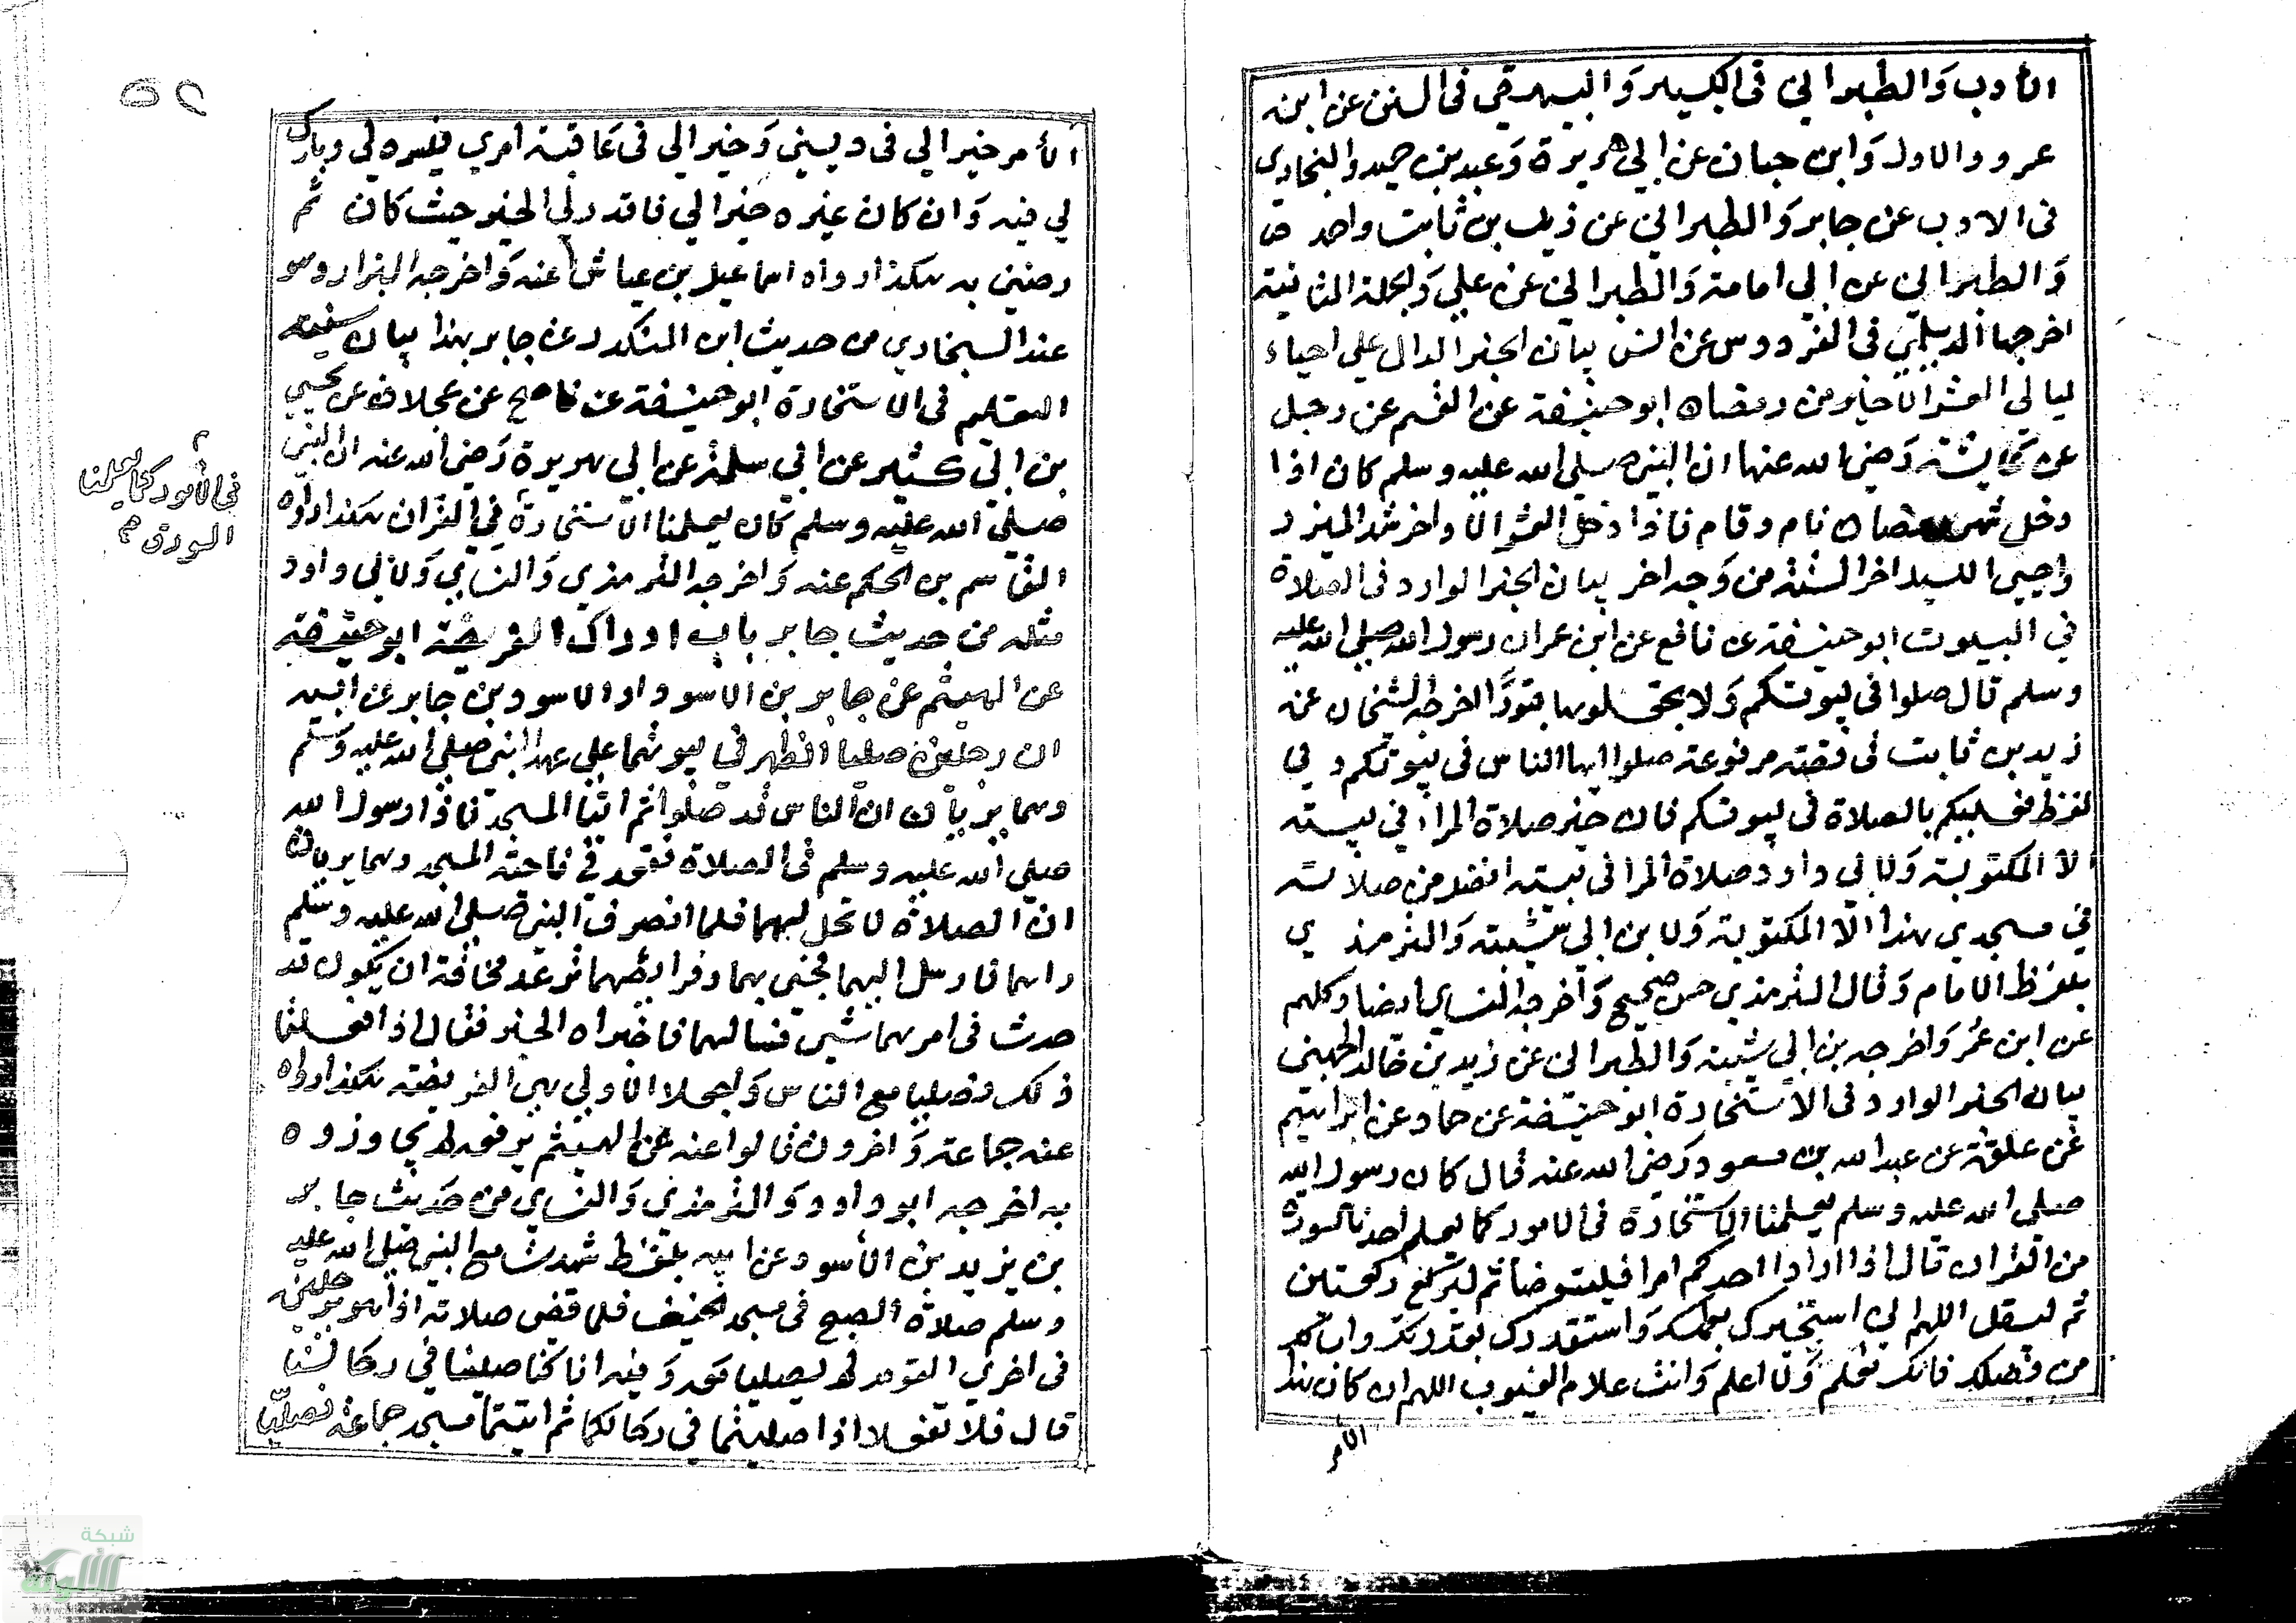 الأدب والطبراني في الكبير والبيهقي في السنن عن ابن
عمرو والاول وابن حبان عن ابي هريرة وعبد بن حميد والبخاري
في الادب عن جابر والطبراني عن زيد بن ثابت واحمد
والطبراني عن ابي امامة والطبراني عن علي والجملة الثانية
اخرجها الديلمي في الفردوس عن انس بيان الخبر الدال علي احياء
ليالي العشر الاخير من رمضان ابو حنيفة عن الهيثم عن رجل
عن عايشة رضي الله عنها ان النبي صلي الله عليه وسلم كان اذا
دخل شهر رمضان نام وقام فاذا دخل العشر الاواخر شد الميزر
واحيي الليل اخر الستة من وجه اخر بيان الخبر الوارد في الصلاة
في البيوت ابو حنيفة عن نافع عن ابن عمر ان رسول الله صلي الله عليه
وسلم قال صلوا في بيوتكم ولا تجعلوها قبورًا اخرجه الشيخان عن
زيد بن ثابت في قصته مرفوعة صلوا ايها الناس في بيوتكم وفي
لفظ فعليكم بالصلاة في بيوتكم فان خير صلاة المرأ في بيته
الا المكتوبة ولابي داود صلاة المرأ في بيته افضل من صلاته
في مسجدي هذا الا المكتوبة ولابن ابي شيبة والترمذي
بلفظ الامام وقال الترمذي حسن صحيح واخرجه النساي ايضا وكلهم
عن ابن عمر واخرجه بن ابي شيبة والطبراني عن زيد بن خالد الجهني
بيان الخبر الوارد في الاستخارة ابو حنيفة عن حماد عن ابراهيم
عن علقمة عن عبد الله بن مسعود رضي الله عنه قال كان رسول الله
صلي الله عليه وسلم يعلمنا الاستخارة في الامور كما يعلم احدنا السورة
من القران قال اذا اراد احدكم امرا فليتوضأ ثم ليركع ركعتين
ثم ليقل اللهم اني استخيرك بعلمك واستقدرك بقدرتك واسألك
من فضلك فانك تعلم ولا اعلم وانت علام الغيوب اللهم ان كان هذا
الأمر
الأمر خيرا لي في ديني وخيرا لي في عاقبة امري فيسره لي وبارك
لي فيه وان كان غيره خيرا لي فاقدر لي الخير حيث كان ثم
رضني به هكذا رواه اسماعيل بن عياش عنه واخرجه البزار وهو
عند البخاري من حديث ابن المنكدر عن جابر بهذا بيان
التعليم في الاستخارة ابو حنيفة عن ناصح عن عجلان عن يحيي
بن ابي كثير عن ابي سلمة عن ابي هريرة رضي الله عنه ان النبي
صلي الله عليه وسلم كان يعلمنا الاستخارة في القران هكذا رواه
القاسم بن الحكم عنه واخرجه الترمذي والنساي ولابي داود
مثله من حديث جابر باب ادراك الفريضة ابو حنيفة
عن الهيثم عن جابر بن الاسود او الاسود بن جابر عن ابيه
ان رجلين صليا الظهر في بيوتهما علي عهد النبي صلي الله عليه وسلم
وهما يريان ان الناس قد صلوا ثم اتيا المسجد فاذا رسول الله
صلي الله عليه وسلم في الصلاة فقعد في ناحية المسجد وهما يريان
ان الصلاة لا تحل لهما فلما انصرف النبي صلي الله عليه وسلم
راهما فارسل اليهما فجئ بهما وفرايصهما ترعد مخافة ان يكون قد
حدث في امرهما شي فسألهما فاخبراه الخبر فقال اذا فعلتما
ذلك فصليا مع الناس واجعلا الاولي هي الفريضة هكذا رواه
عنه جماعة واخرون قالوا عنه عن الهيثم يرفعه لم يجاوزوه
به اخرجه ابو داود والترمذي والنساي من حديث جابر
بن يزيد بن الأسود عن ابيه بلفظ شهدت مع النبي صلي الله عليه
وسلم صلاة الصبح في مسجد الخيف فلما قضي صلاته اذا هو برجلين
في اخري القوم لم يصليا معه وفيه انا كنا صلينا في رحالنا
قال فلا تفعلا اذا صليتما في رحالكما ثم اتيتما مسجد جماعة فصليا
في الأمور كما يعلمنا
السورة